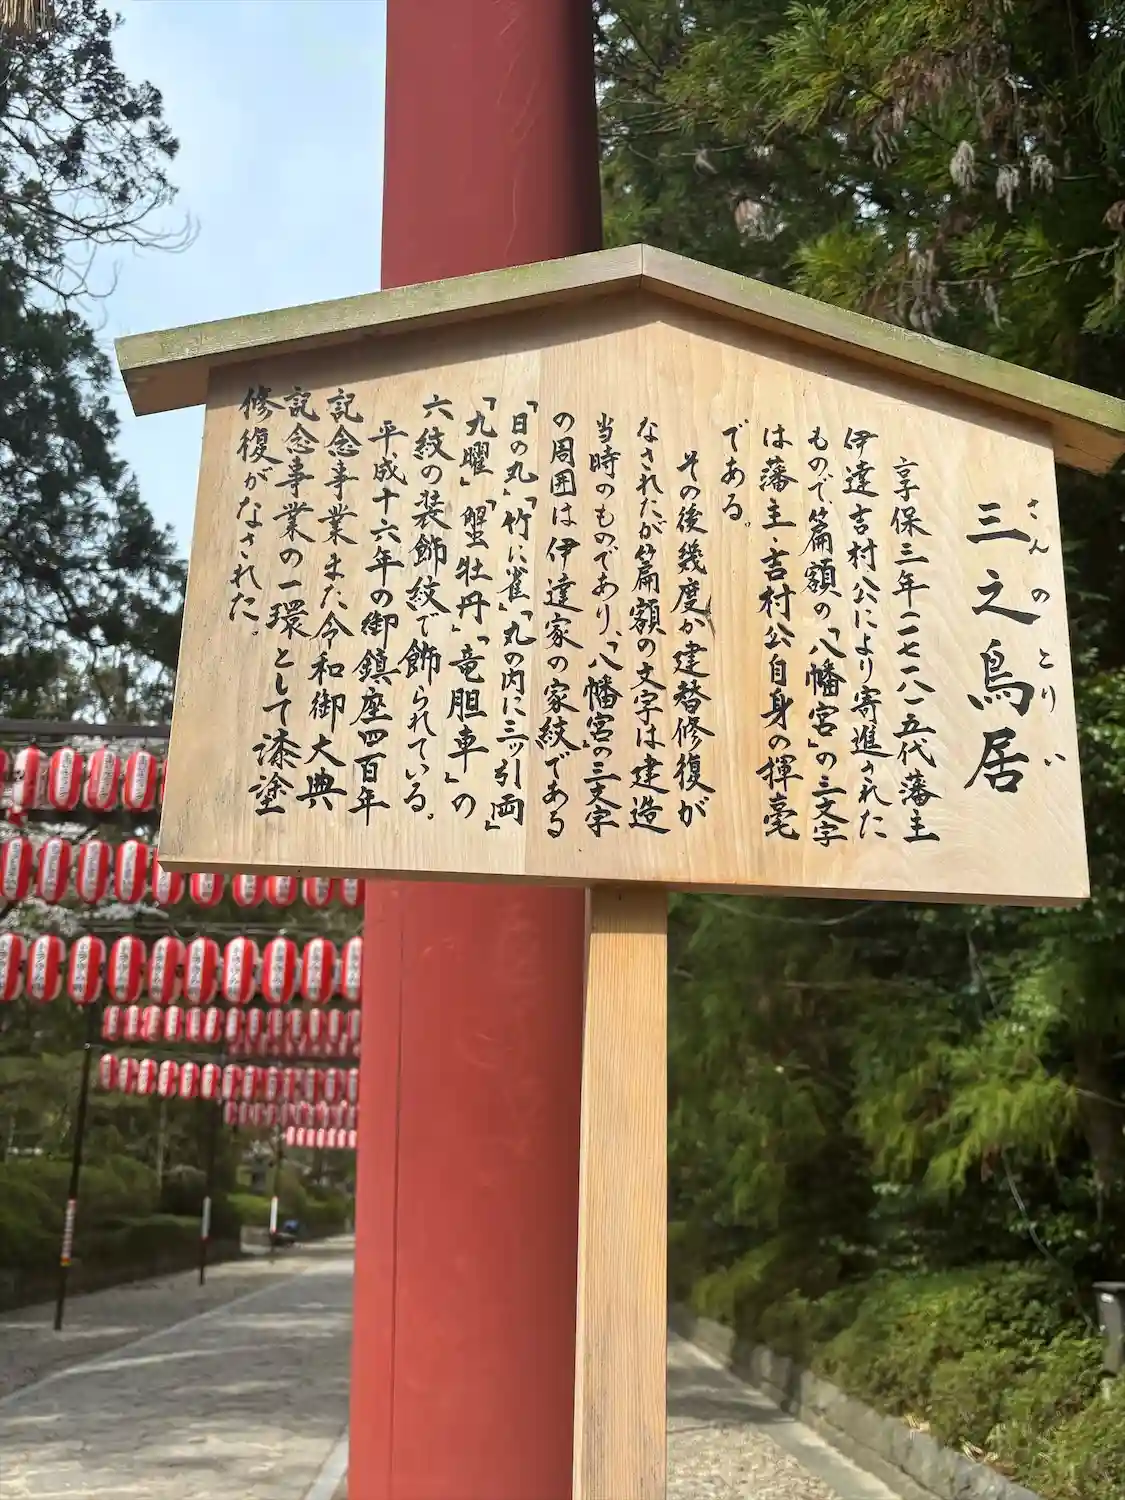 三之鳥居
さんのとりい
享保三年(一七一八)五代藩主
伊達吉村公により寄進された
もので、篇額の「八幡宮」の三文字
は藩主・吉村公自身の揮毫
である。
その後幾度か建替修復が
なされたが篇額の文字は建造
当時のものであり、「八幡宮」の三文字
の周囲は伊達家の家紋である
「日の丸」「竹に雀」「丸の内に三ッ引両」
「九曜」「蟹牡丹」「竜胆車」の
六紋の装飾紋で飾られている。
平成十六年の御鎮座四百年
記念事業また令和御大典
記念事業の一環として漆塗
修復がなされた。